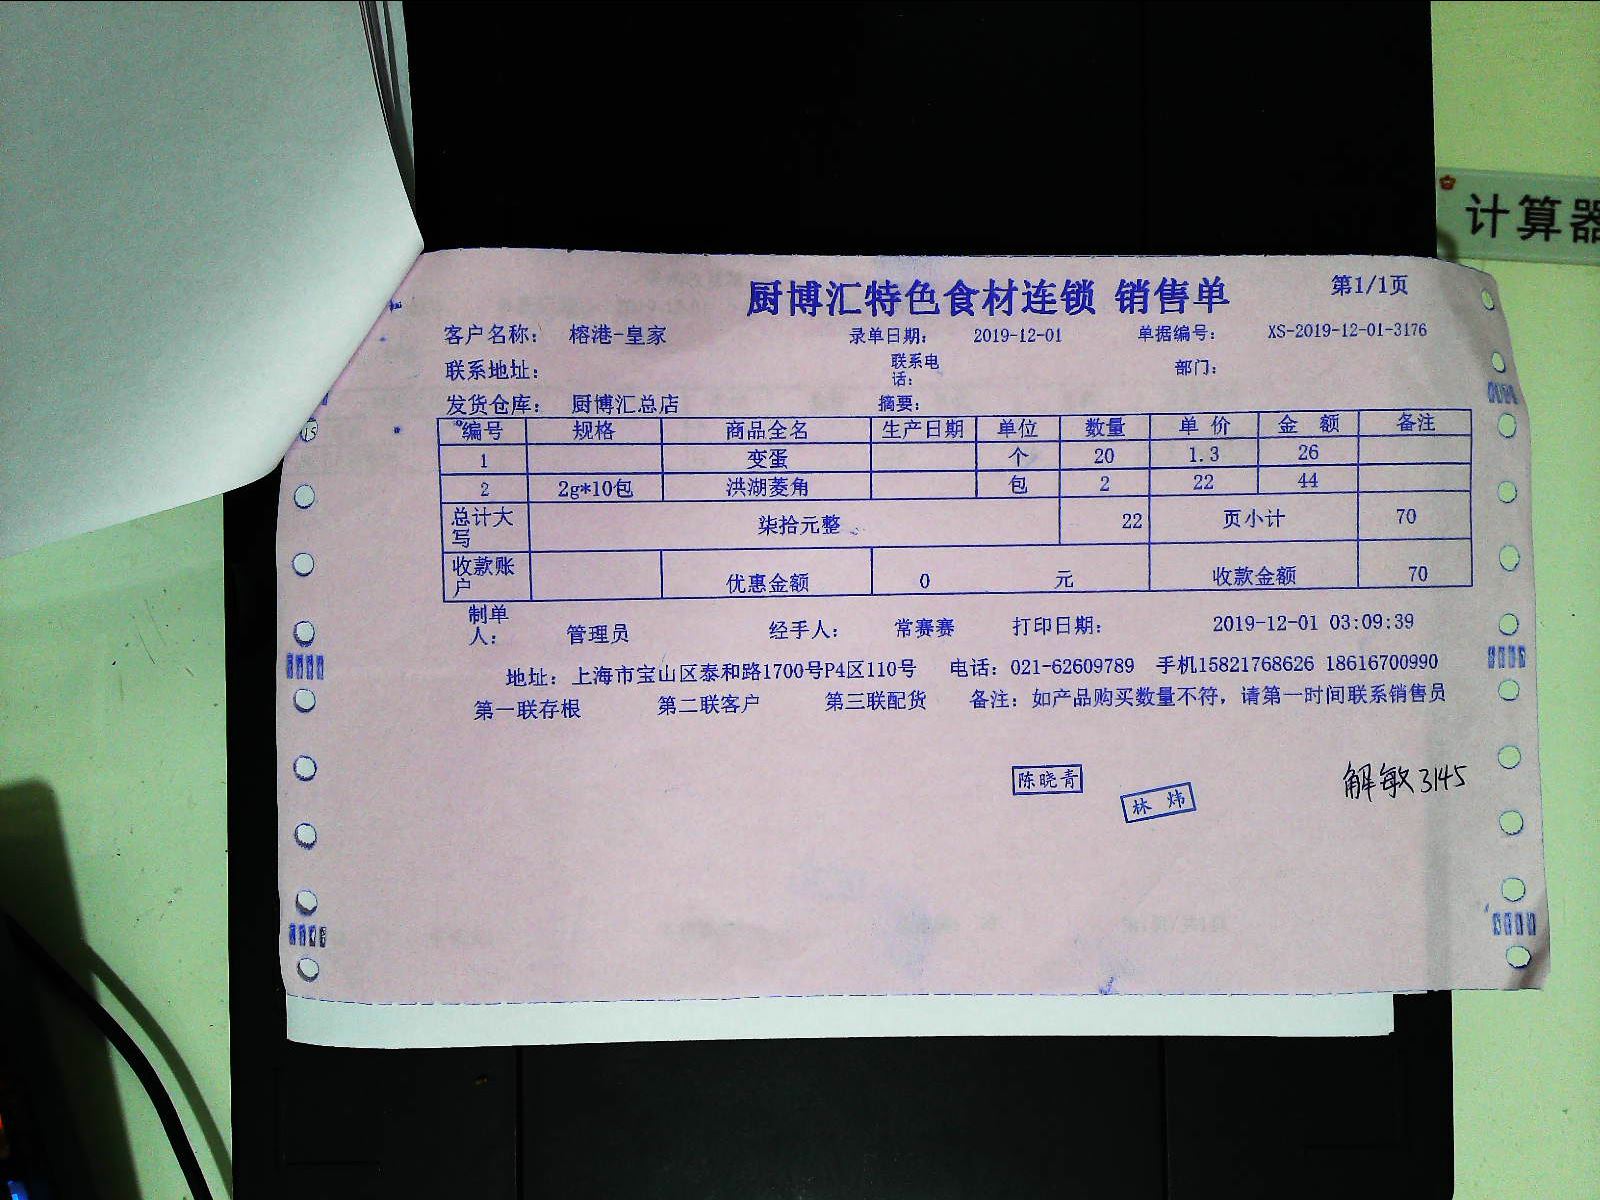 计算器
厨博汇特色食材连锁 销售单 第1/1页
客户名称： 榕港-皇家 录单日期： 2019-12-01 单据编号： XS-2019-12-01-3176
联系地址： 联系电话： 部门：
发货仓库： 厨博汇总店 摘要：
编号 规格 商品全名 生产日期 单位 数量 单价 金额 备注
1 变蛋 个 20 1.3 26
2 2g*10包 洪湖菱角 包 2 22 44
总计大写 柒拾元整 22 页小计 70
收款账户 优惠金额 0 元 收款金额 70
制单人： 管理员 经手人： 常赛赛 打印日期： 2019-12-01 03:09:39
地址：上海市宝山区泰和路1700号P4区110号 电话：021-62609789 手机15821768626 18616700990
第一联存根 第二联客户 第三联配货 备注：如产品购买数量不符，请第一时间联系销售员
陈晓青
林炜
解敏3145